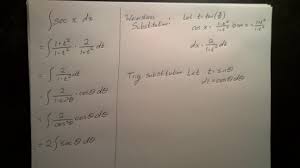 ∫ sec x dx
= ∫ (1+t²)/(1-t²) · 2/(1+t²) dt
= ∫ 2/(1-t²) dt
= ∫ 2/(1-sin²θ) · cosθ dθ
= ∫ 2/cos²θ cosθ dθ
= 2∫ sec θ dθ
Weierstrass Substitution: Let t=tan(x/2)
cos x =
dx =
Trig substitution Let t=sinθ
dt=cosθdθ